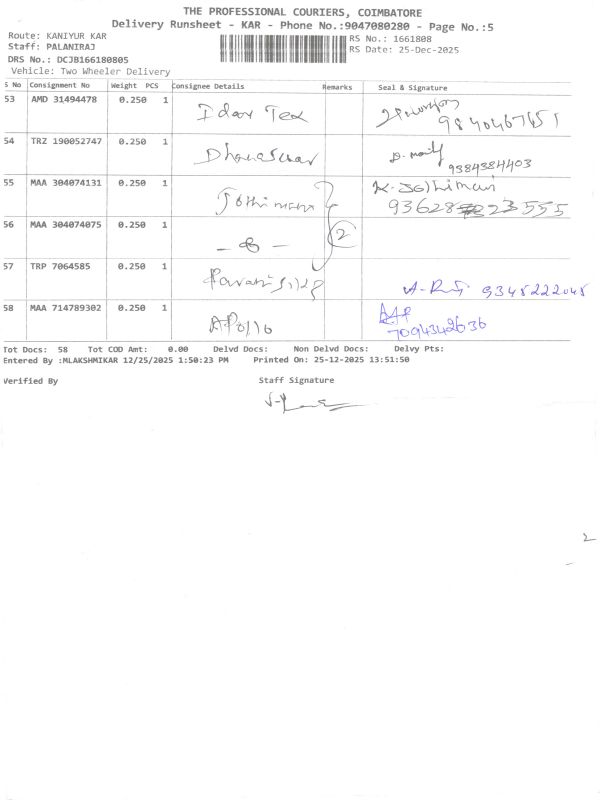 THE PROFESSIONAL COURIERS, COIMBATORE
Delivery Runsheet - KAR - Phone No.:9047080280 - Page No.:5
Route: KANIYUR KAR
Staff: PALANIRAJ
DRS No.: DCJB166180805
Vehicle: Two Wheeler Delivery
RS No.: 1661808
RS Date: 25-Dec-2025
S No Consignment No Weight PCS Consignee Details Remarks Seal & Signature
53 AMD 31494478 0.250 1 Idar Tex
54 TRZ 190052747 0.250 1 9384384403
55 MAA 304074131 0.250 1 Jothimani K. Jothimani
56 MAA 304074075 0.250 1 2
57 TRP 7064585 0.250 1 9345222045
58 MAA 714789302 0.250 1 Apollo 7094342636
Tot Docs: 58 Tot COD Amt: 0.00 Delvd Docs: Non Delvd Docs: Delvy Pts:
Entered By :MLAKSHMIKAR 12/25/2025 1:50:23 PM Printed On: 25-12-2025 13:51:50
Verified By Staff Signature
2